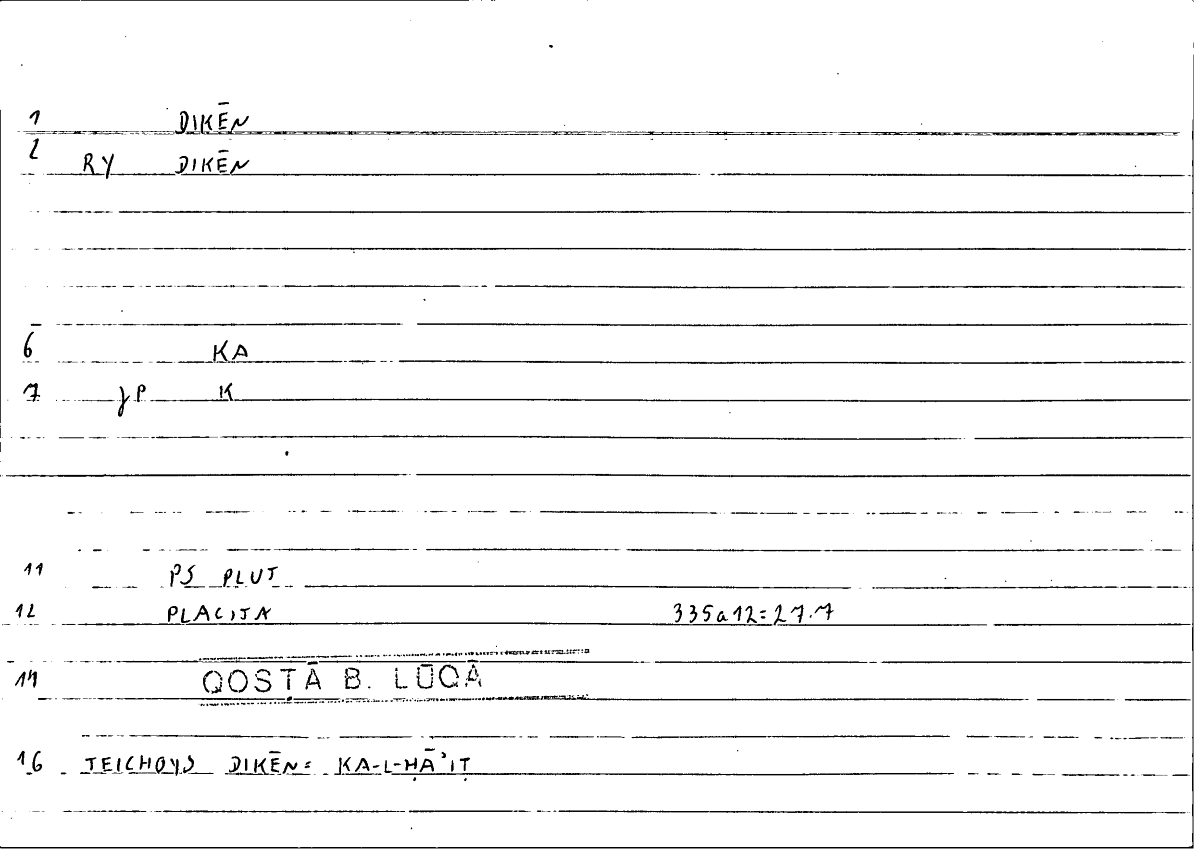 1 DIKĒN
2 RY DIKĒN
6 KA
7 γP K
11 PS PLUT
12 PLACITA 335a12=27.7
14 QOSṬĀ B. LŪQĀ
16 TEICHOYS DIKĒN= KA-L-ḤĀʾIṬ